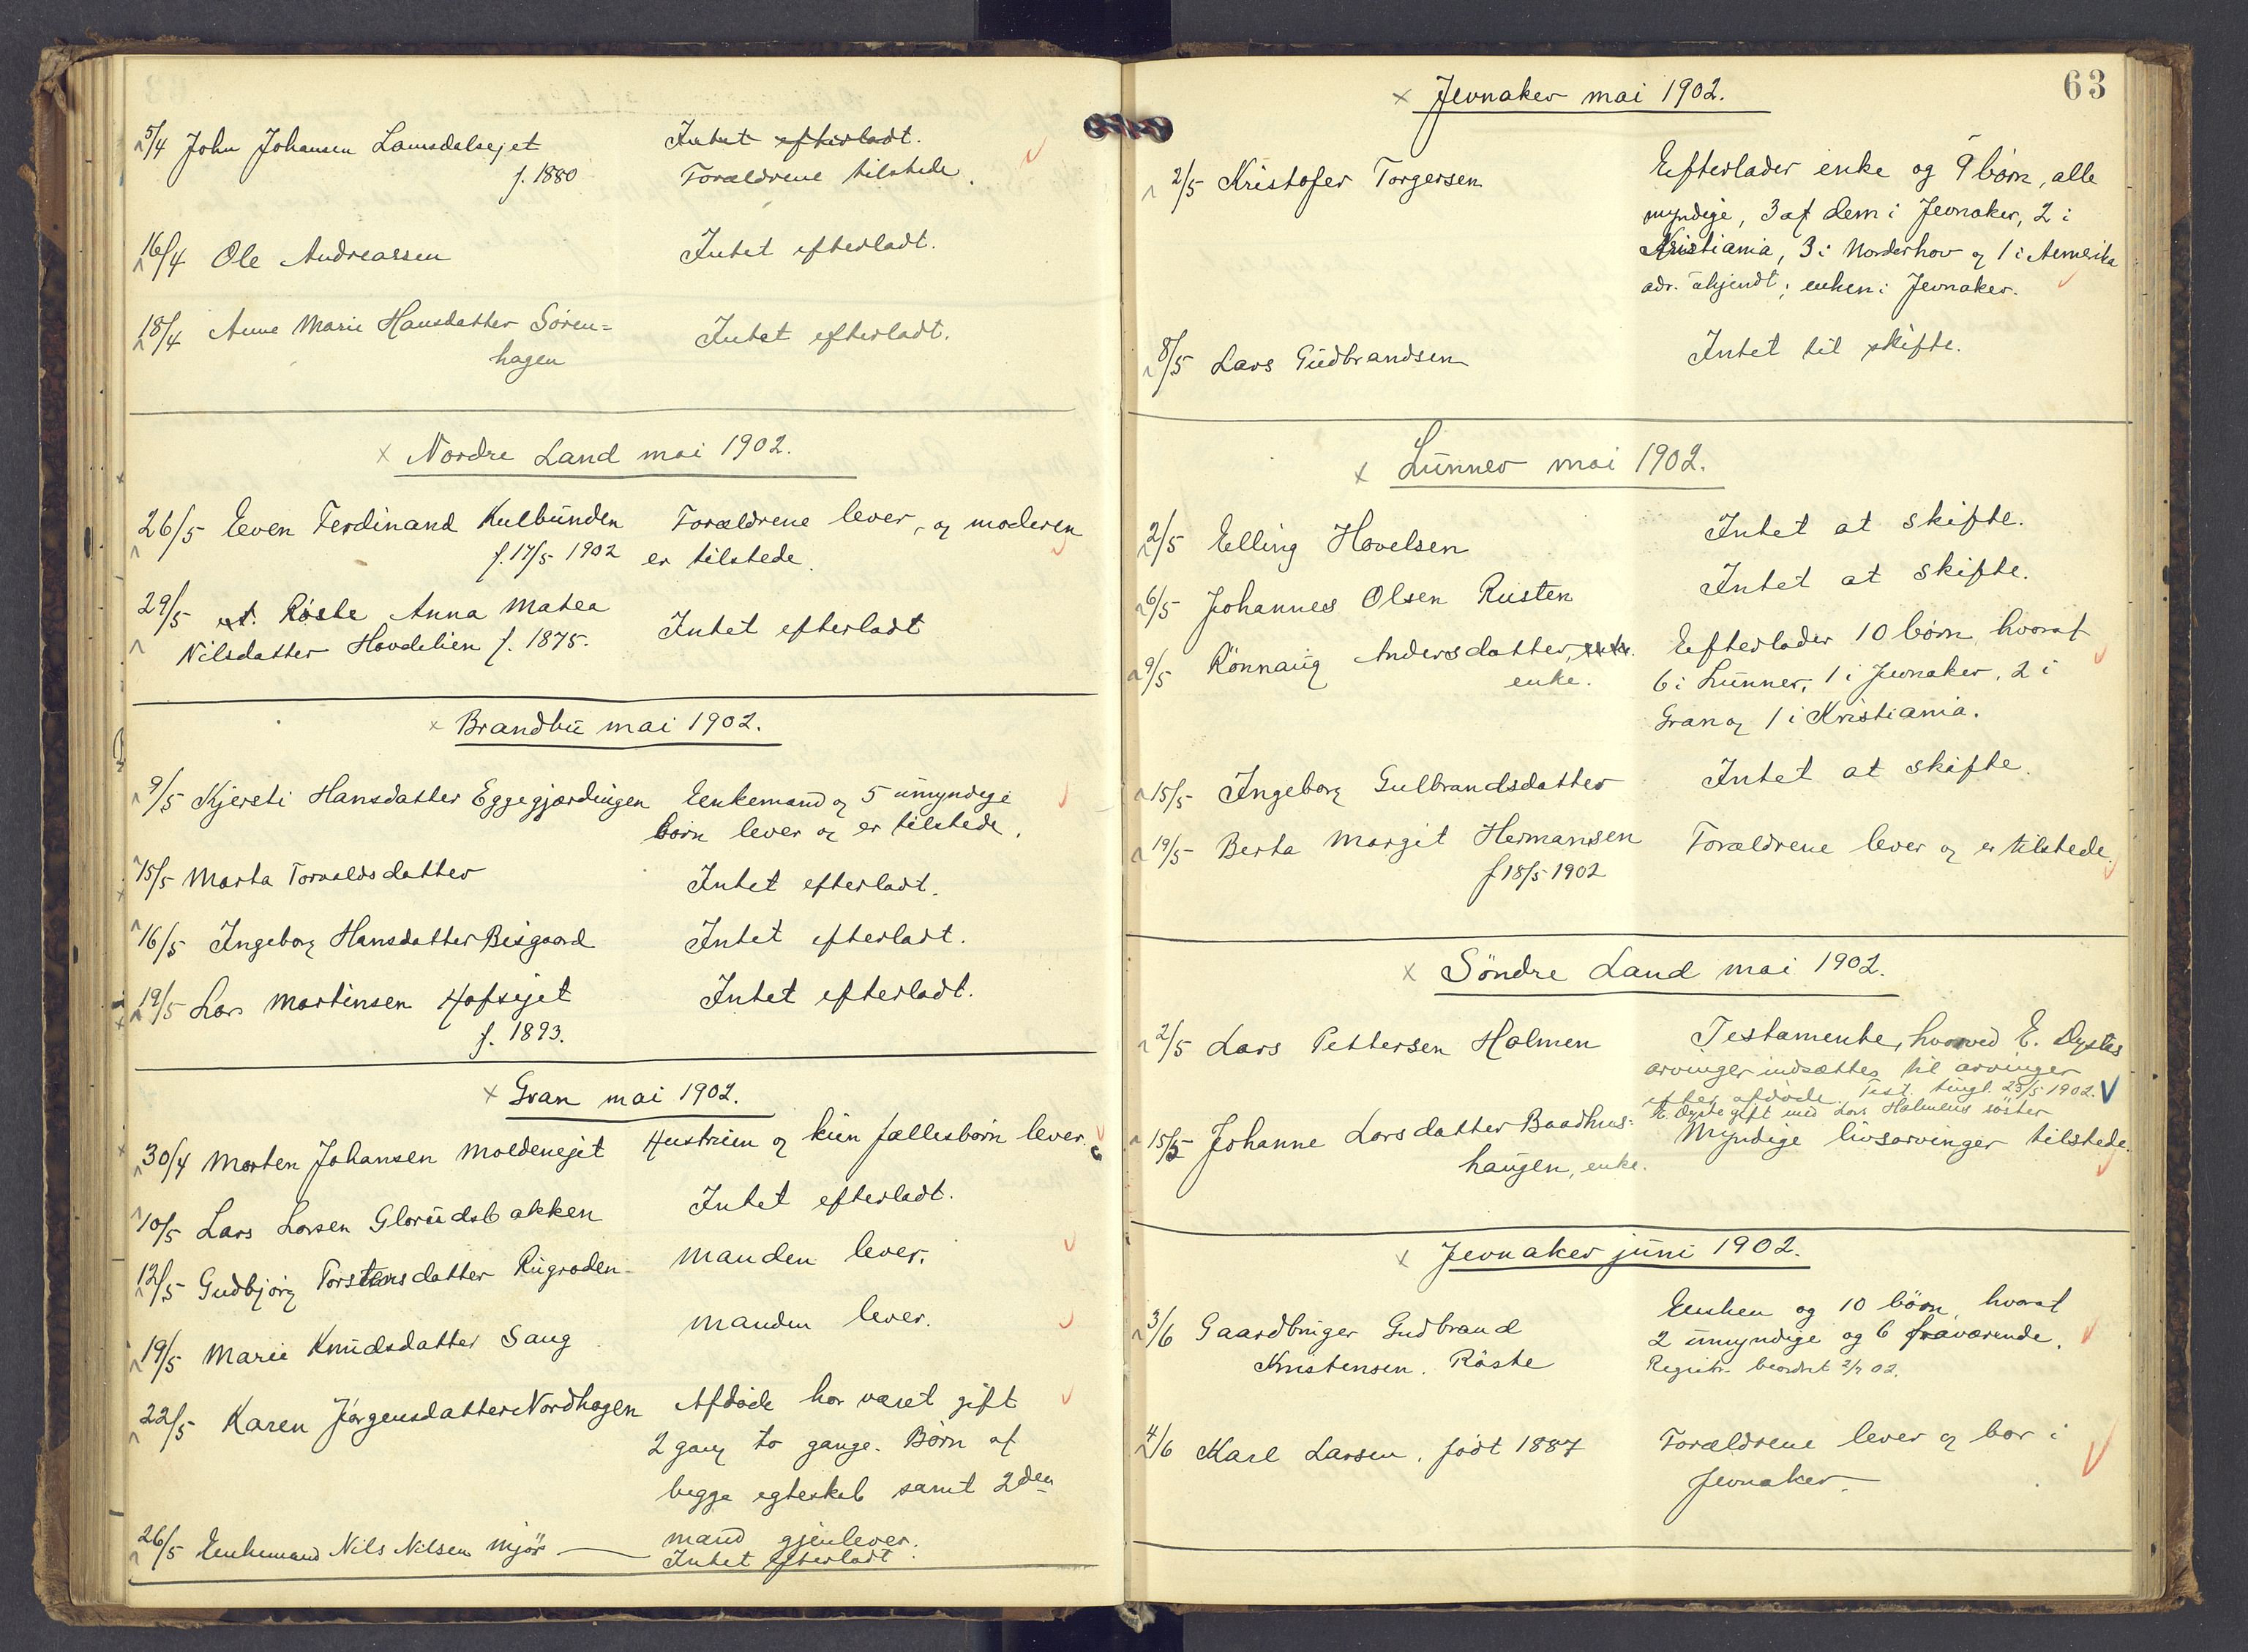 5/4 John Johansen Lamsdalsejet Intet efterladt.
f. 1880 Forældrene tilstede.
16/4 Ole Andreassen Intet efterladt.
18/4 Anne Marie Hansdatter Sören= Intet efterladt.
hagen
x Nordre Land mai 1902.
26/5 Even Ferdinand Kulbunden Forældrene lever, og moderen
f. 17/5 1902 er tilstede.
29/5 Röste Anna Matea Intet efterladt
Nilsdatter Hovdelien f. 1875.
x Brandbu mai 1902.
9/5 Kjersti Hansdatter Eggegjærdingen Enkemand og 5 umyndige
börn lever og er tilstede.
15/5 Marta Torvaldsdatter Intet efterladt.
16/5 Ingeborg Hansdatter Bisgaard Intet efterladt.
19/5 Lars Martinsen Hofsejet Intet efterladt.
f. 1893.
x Gran mai 1902.
30/4 Morten Johansen Moldenejet Hustruen og kun fællesbörn lever.
10/5 Lars Larsen Glorudsbakken Intet efterladt.
12/5 Gudbjörg Torstensdatter Rugroden Manden lever.
19/5 Marie Knudsdatter Sang Manden lever.
22/5 Karen Jörgensdatter Nordhagen Afdöde har været gift
2 gang to gange. Börn af
begge egteskab samt 2den
mand gjenlever.
26/5 Enkemand Nils Nilsen Mjör — Intet efterladt.
63
x Jevnaker mai 1902.
2/5 Kristofer Torgersen Efterlader enke og 9 börn, alle
myndige, 3 af dem i Jevnaker, 2 i
Kristiania, 3 i Norderhov og 1 i Amerika
adr. ukjendt; enken i Jevnaker.
8/5 Lars Gudbrandsen Intet til skifte.
x Lunner mai 1902.
2/5 Elling Hovelsen Intet at skifte.
6/5 Johannes Olsen Rusten Intet at skifte.
9/5 Rönnaug Andersdatter, enke. Efterlader 10 börn, hvoraf
enke. 6 i Lunner, 1 i Jevnaker, 2 i
Gran og 1 i Kristiania.
15/5 Ingeborg Gulbrandsdatter Intet at skifte.
19/5 Berta Margit Hermansen Forældrene lever og er tilstede.
f 18/5 1902
x Söndre Land mai 1902.
2/5 Lars Pettersen Halmen Testamente, hvorved E. Dystes
arvinger indsættes til arvinger
efter afdöde. Test. tingl. 23/5 1902. V
E. Dyste gift med Lars Halmens söster
15/5 Johanne Larsdatter Baadhus= Myndige livsarvinger tilstede.
haugen, enke.
x Jevnaker juni 1902.
3/6 Gaardbruger Gudbrand Enken og 10 börn, hvoraf
2 umyndige og 6 fraværende.
Kristensen. Röste Registr. beordret 2/7 02.
4/6 Karl Larsen. födt 1887 Forældrene lever og bor i
Jevnaker.